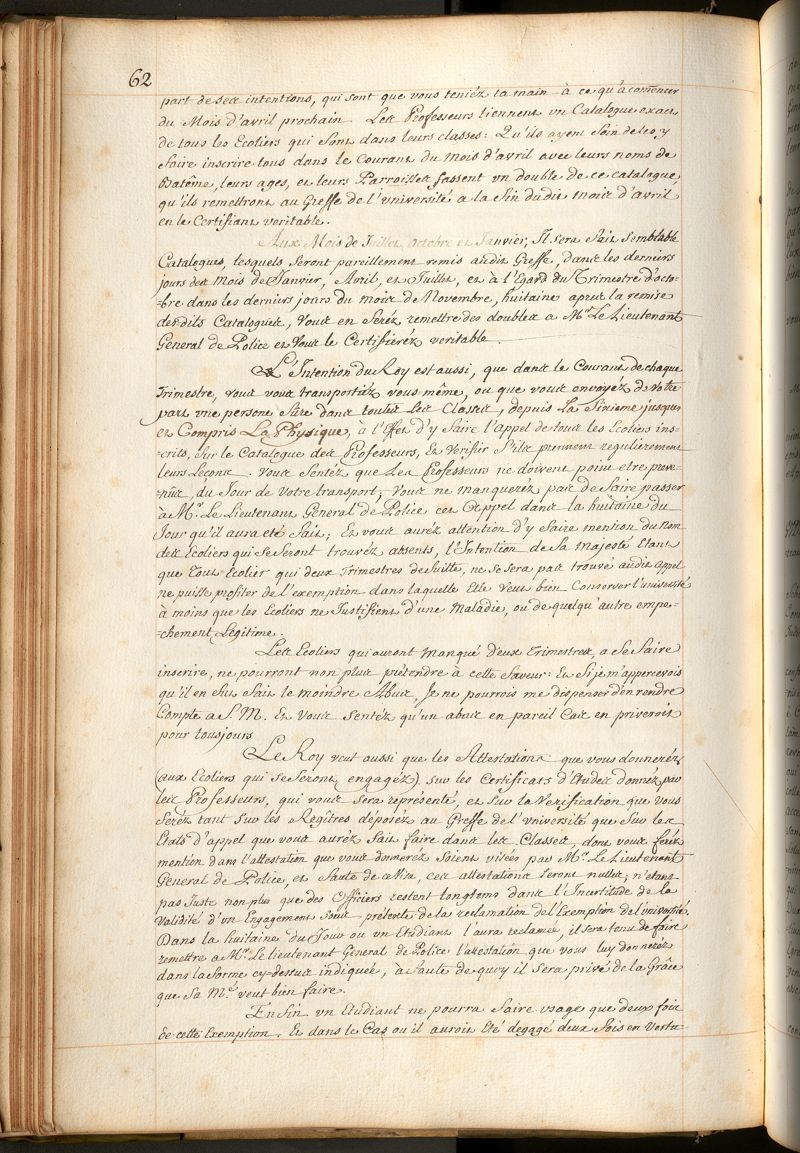 62
part de ses intentions, qui sont que vous teniéz la main à ce qu'à comencer
du Mois d'avril prochain. Les Professeurs tiennent un Catalogue exact
de tous les Ecoliers qui sont dans leurs classes: Qu'ils ayent soin de les y
faire inscrire tous dans le Courant du mois d'avril avec leurs noms de
Batême, leurs ages, et leurs Parroisses fassent un double de ce catalogue,
qu'ils remettront au Greffe de l'Université a la fin dudit mois d'avril
en le Certifiant veritable.
Aux Mois de Juillet, octobre et Janvier, Il sera fait semblable
Catalogue, lesquels seront pareillement remis audit Greffe, dans les derniers
jours des Mois de Janvier, Avril, et Juillet, et à l'Egard du Trimestre d'octo-
-bre dans les derniers jours du mois de Novembre, huitaine aprés la remise
desdits Catalogues, Vous en feréz remettre des doubles a Mr. Le Lieutenant
General de Police et Vous le Certifieréz veritable.
L'Intention du Roy est aussi, que dans le Courant de chaque
Trimestre, vous vous transportiéz vous même, ou que vous envoyéz de Votre
part une persone Sure dans toutes les Classes, depuis La Sixieme jusques
et Compris La Physique, à l'Effet d'y faire l'Appel de tous les Ecoliers ins-
-crits, sur le Catalogue des Professeurs, Et Verifier S'ils prennent regulierement
leurs Leçons. Vous Sentéz que Les Professeurs ne doivent point etre preve-
-nus, du Jour de Votre transport; Vous ne manqueréz pas de faire passer
à Mr. Le Lieutenant General de Police cet Appel dans la huitaine du
Jour qu'il aura eté fait; Et vous auréz attention d'y faire mention du Nom
des Ecoliers qui se Seront trouvéz absents, l'Intention de Sa Majesté Etant
que Tout Ecolier qui deux Trimestres de Suitte, ne se sera pas trouvé audit appel
ne puisse profiter de l'exemption dans laquelle Elle Veut bien Conserver l'université
à moins que les Ecoliers ne Justifient d'une Maladie, ou de quelqu'autre empe-
-chement Legitime.
Les Ecoliers qui auront manqué deux Trimestres, a se faire
inscrire, ne pourront non plus prétendre à cette faveur: Et Si je m'appercevois
qu'il en fut fait le moindre Abus, Je ne pourrois me dispenser d'en rendre
Compte a S. M. Et Vous Sentéz qu'un abus en pareil Cas en priveroit
pour tousjours
Le Roy veut aussi que les Attestations que vous donneréz
(aux Ecoliers qui se Seront engagéz) sur les Certificats d'Etudes donnéz par
les Professeurs, qui vous sera représenté, et sur la Verification que vous
feréz tant sur les Regîtres déposéz au Greffe de l'Université que sur les
Etats d'appel que vous auréz fait faire dans les Classes, dont vous feréz
mention dans l'attestation que vous donneréz soient visées par Mr. Le Lieutenant
General de Police, et faute de ce Visa, ces attestations seront nulles; n'étant
pas Juste non plus que des Officiers restent longtems dans l'Incertitude de la
Validité d'un Engagement sous pretexte de la reclamation de l'Exemption de l'université.
Dans la huitaine du Jour ou un Etudiant l'aura reclamée, il sera tenu de faire
remettre a Mr. Le lieutenant General de Police l'attestation que vous luy donneréz
dans la forme cy-dessus indiquée, à faute de quoy il sera privé de la Grâce
que Sa M.té veut bien faire.
Enfin un Etudiant ne pourra faire usage que deux fois
de cette Exemption. Et dans le Cas ou il auroit Eté dégagé deux fois en Vertu-